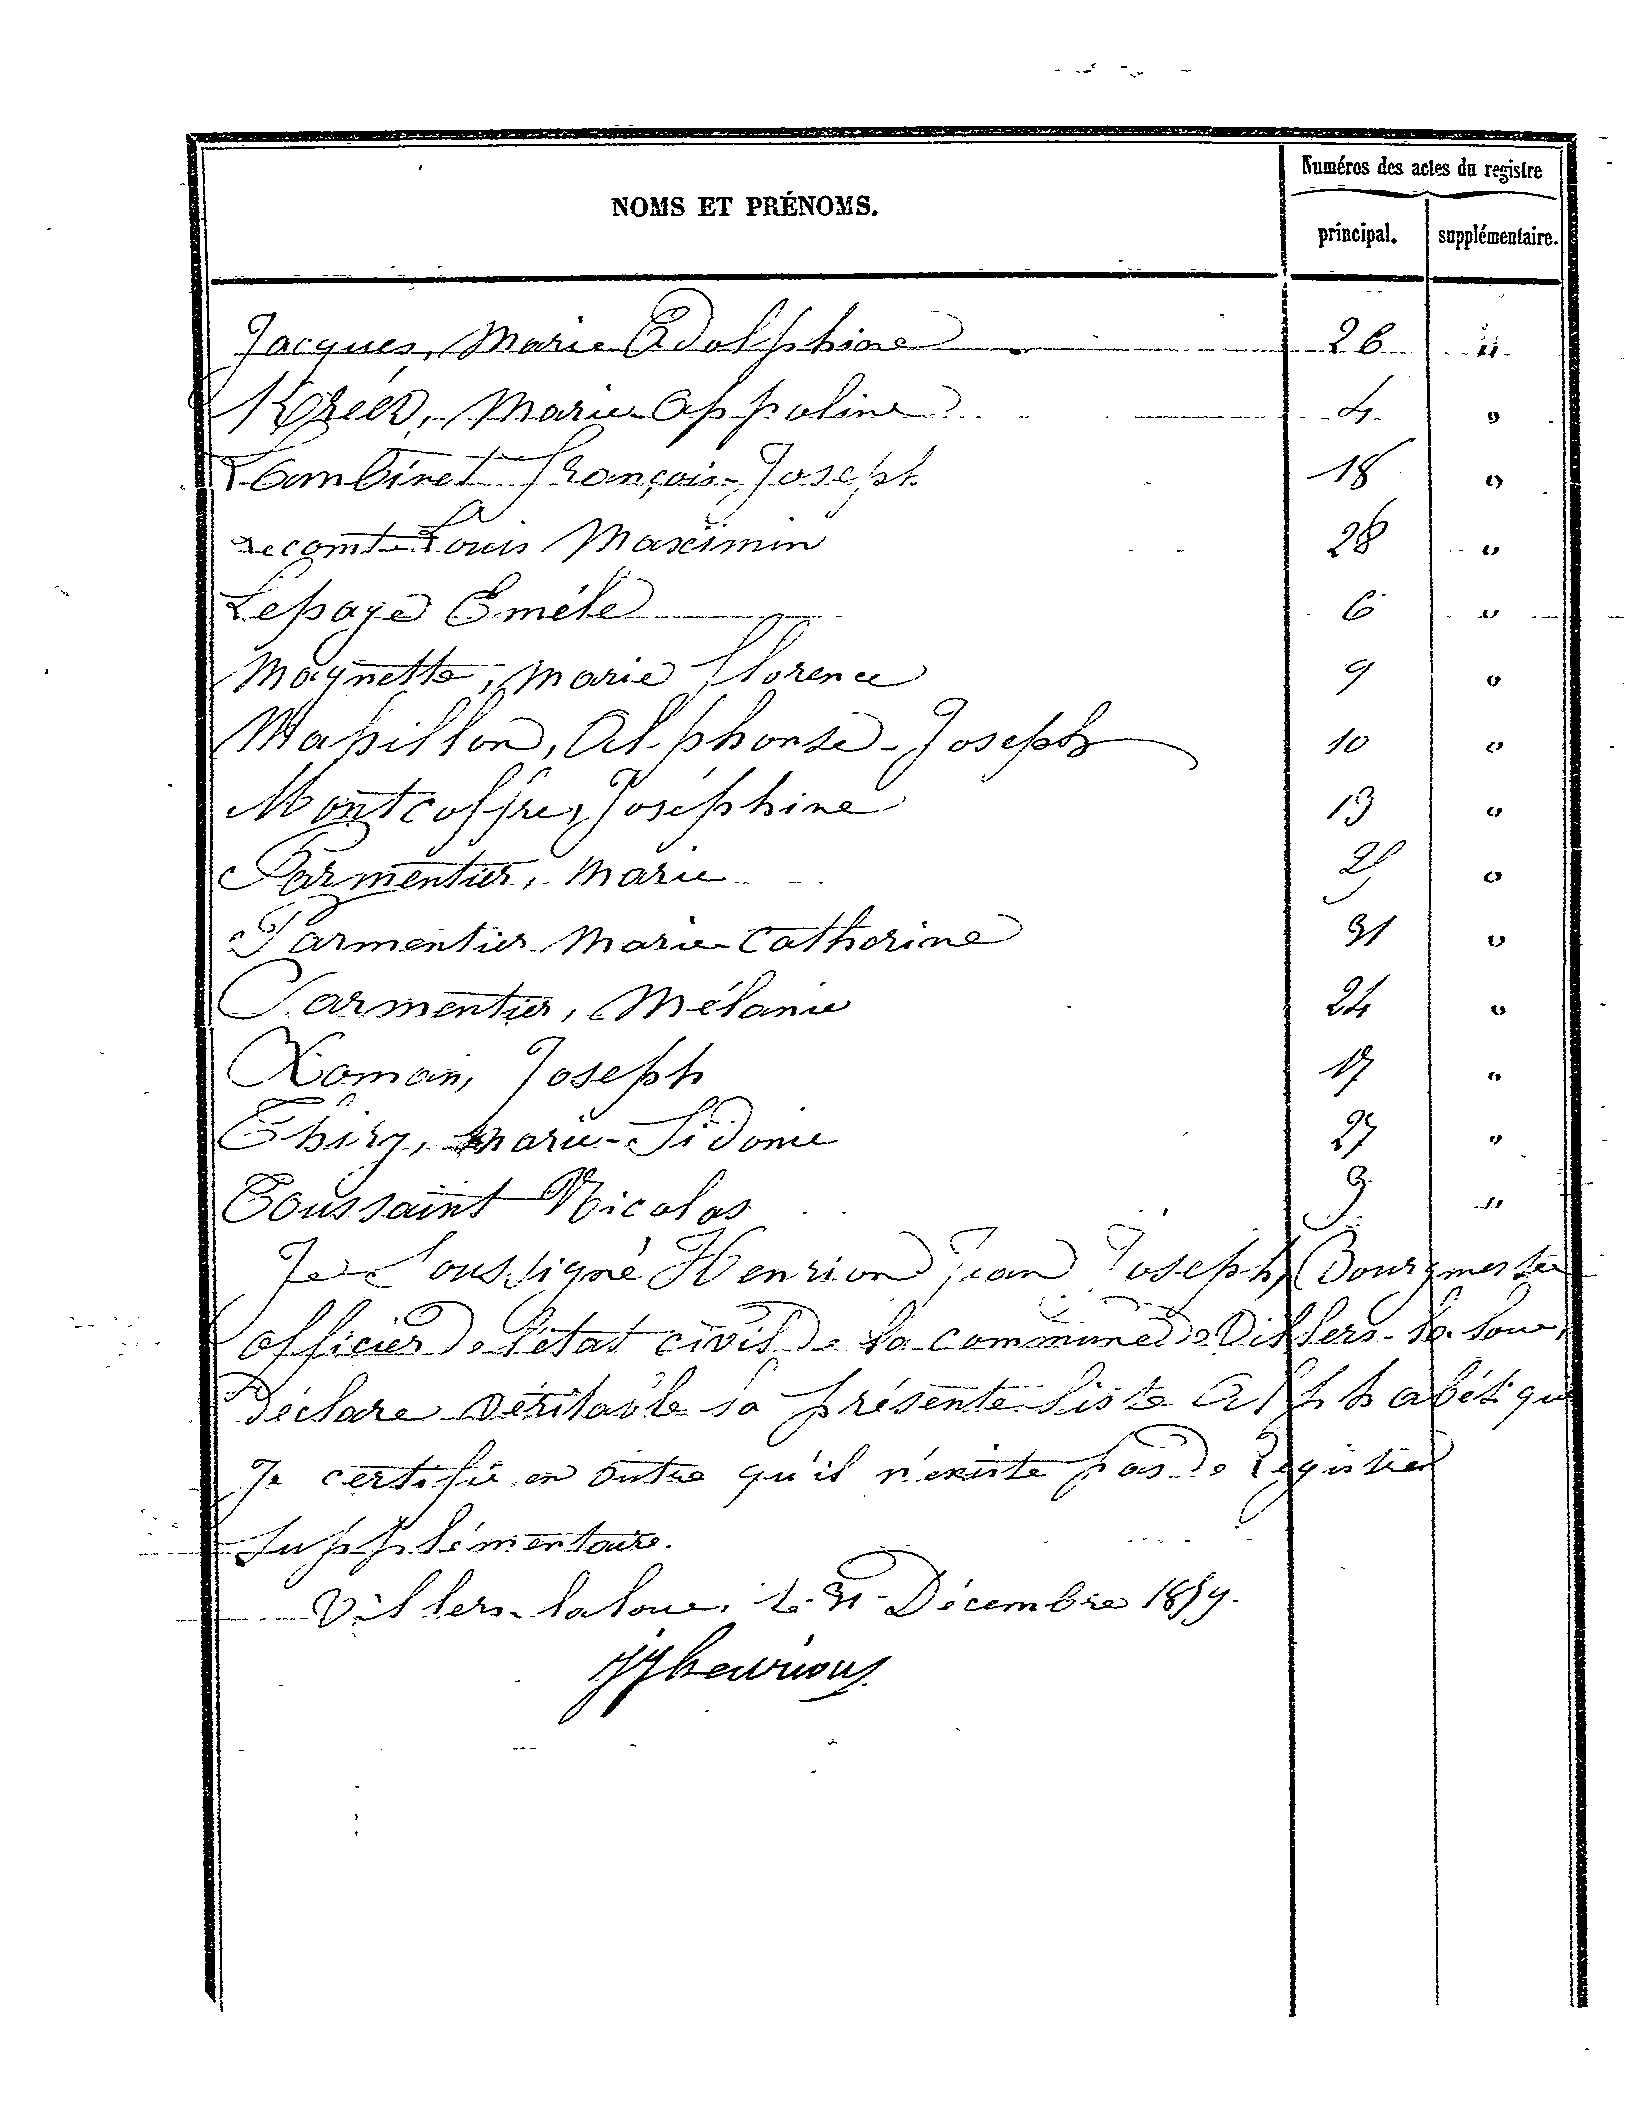 Numéros des actes du registre
NOMS ET PRÉNOMS.
principal. supplémentaire.
Jacques, Marie Adolphine 26 "
Marie Appoline 4 "
Lambinet François-Joseph 18 "
Lecomte Louis Maximin 28 "
Lepage Eméle 6 "
Magnette, Marie Florence 9 "
Alphonse-Joseph 10 "
Montcoffre, Joséphine 13 "
Parmentier, Marie "
Parmentier Marie Catherine 31 "
Parmentier, Mélanie 24 "
Romain, Joseph 17 "
Thiry, Marie-Sidonie 27 "
Toussaint Nicolas 3 "
Je Soussigné Henrion Jean Joseph, Bourgmestre
officier de l'état civil de la commune de Villers-la-loue,
Déclare véritable la présente liste Alphabétique
Je certifie en outre qu'il n'existe pas de Registre
supplémentaire.
Villers-la loue, le 31 Décembre 1859.
JJhenrion